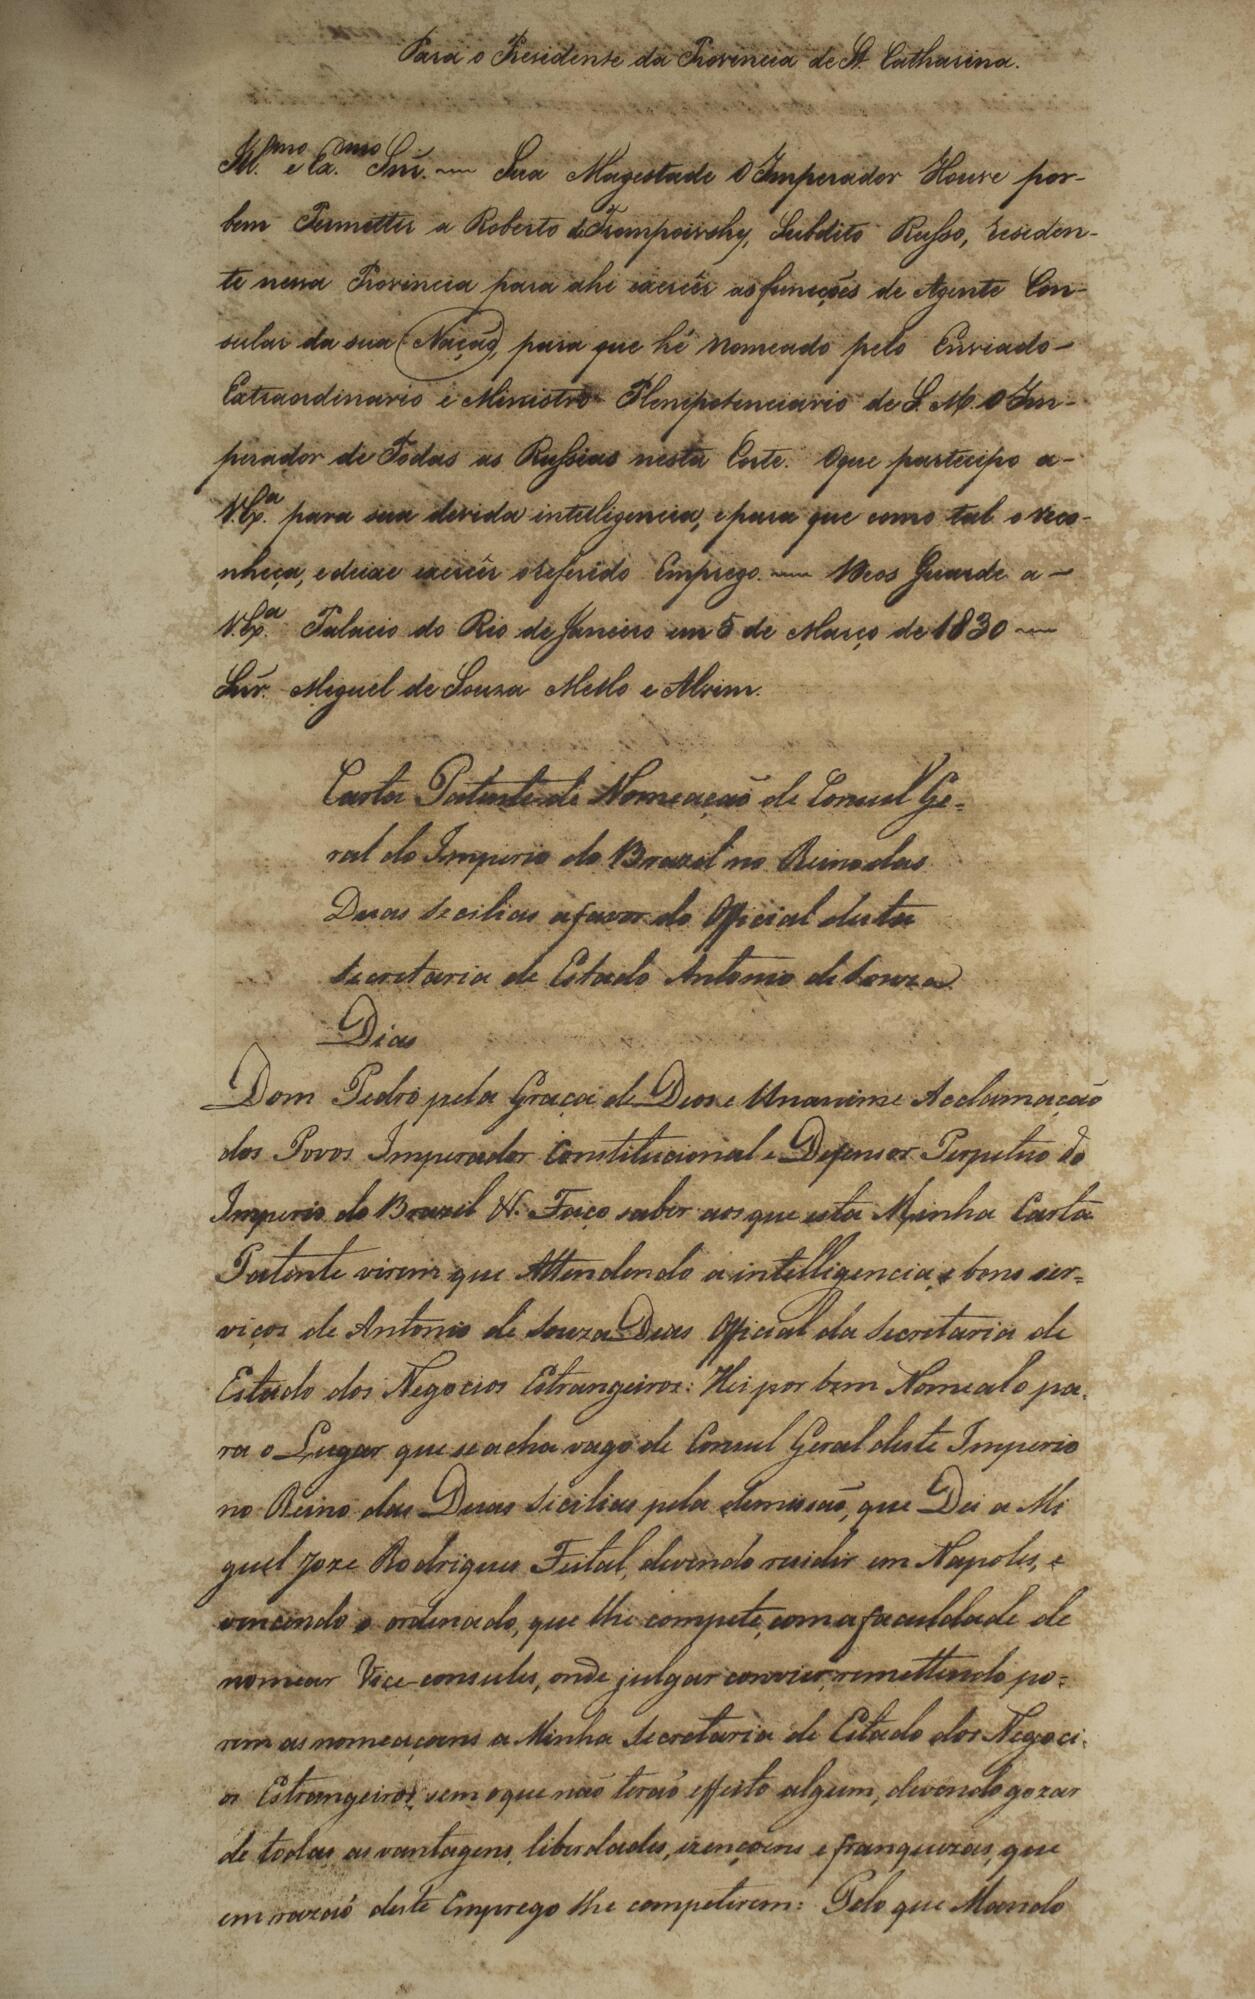 Para o Presidente da Provincia de Sta. Catharina.
Ill.mo e Ex.mo Snr. — Sua Magestade O Imperador Houve por-
bem Permetter a Roberto de Trompoivshy, Subdito Russo, residen-
te nessa Provincia para ahi exercêr as funcções de Agente Con-
sular da sua Nação, para que hé nomeado pelo Enviado-
Extraordinario e Ministro Plenipotenciario de S. M. O Im-
perador de Todas as Russias nesta Corte. O que participo a-
V. Ex.a para sua devida intelligencia, e para que como tal o reco-
nheça, e deixe exercêr o referido Emprego. — Deos Guarde a-
V. Ex.a Palacio do Rio de Janeiro em 5 de Março de 1830 —
Snr. Miguel de Souza Mello e Alvim.
Carta Patente de Nomeação de Consul Ge-
ral do Imperio do Brazil no Reino das
Duas Secilias a favor do Official desta
Secretaria de Estado Antonio de Souza
Dias
Dom Pedro pela Graça de Deos e Unanime Acclamação
dos Povos Imperador Constitucional e Defensor Perpetuo do
Imperio do Brazil &. Faço saber aos que esta Minha Carta
Patente virem que Attendendo a intelligencia, e bons ser-
viços de Antonio de Souza Dias Official da Secretaria de
Estado dos Negocios Estrangeiros: Hei por bem Nomealo pa-
ra o Lugar que se acha vago de Consul Geral deste Imperio
no Reino das Duas Sicilias pela demissaõ, que Dei a Mi
guel Joze Rodrigues Feital, devendo residir em Napoles, e
vencendo o ordenado, que lhe compete, com a faculdade de
nomear Vice-consules, onde julgar convier, remettendo po-
rem as nomeaçoens a Minha Secretaria de Estado dos Negoci-
os Estrangeiros, sem o que naõ teraõ effeito algum, devendo gozar
de todas as vantagens, liberdades, izençoens e franquezas, que
em razaõ deste Emprego lhe competirem: Pelo que Mando